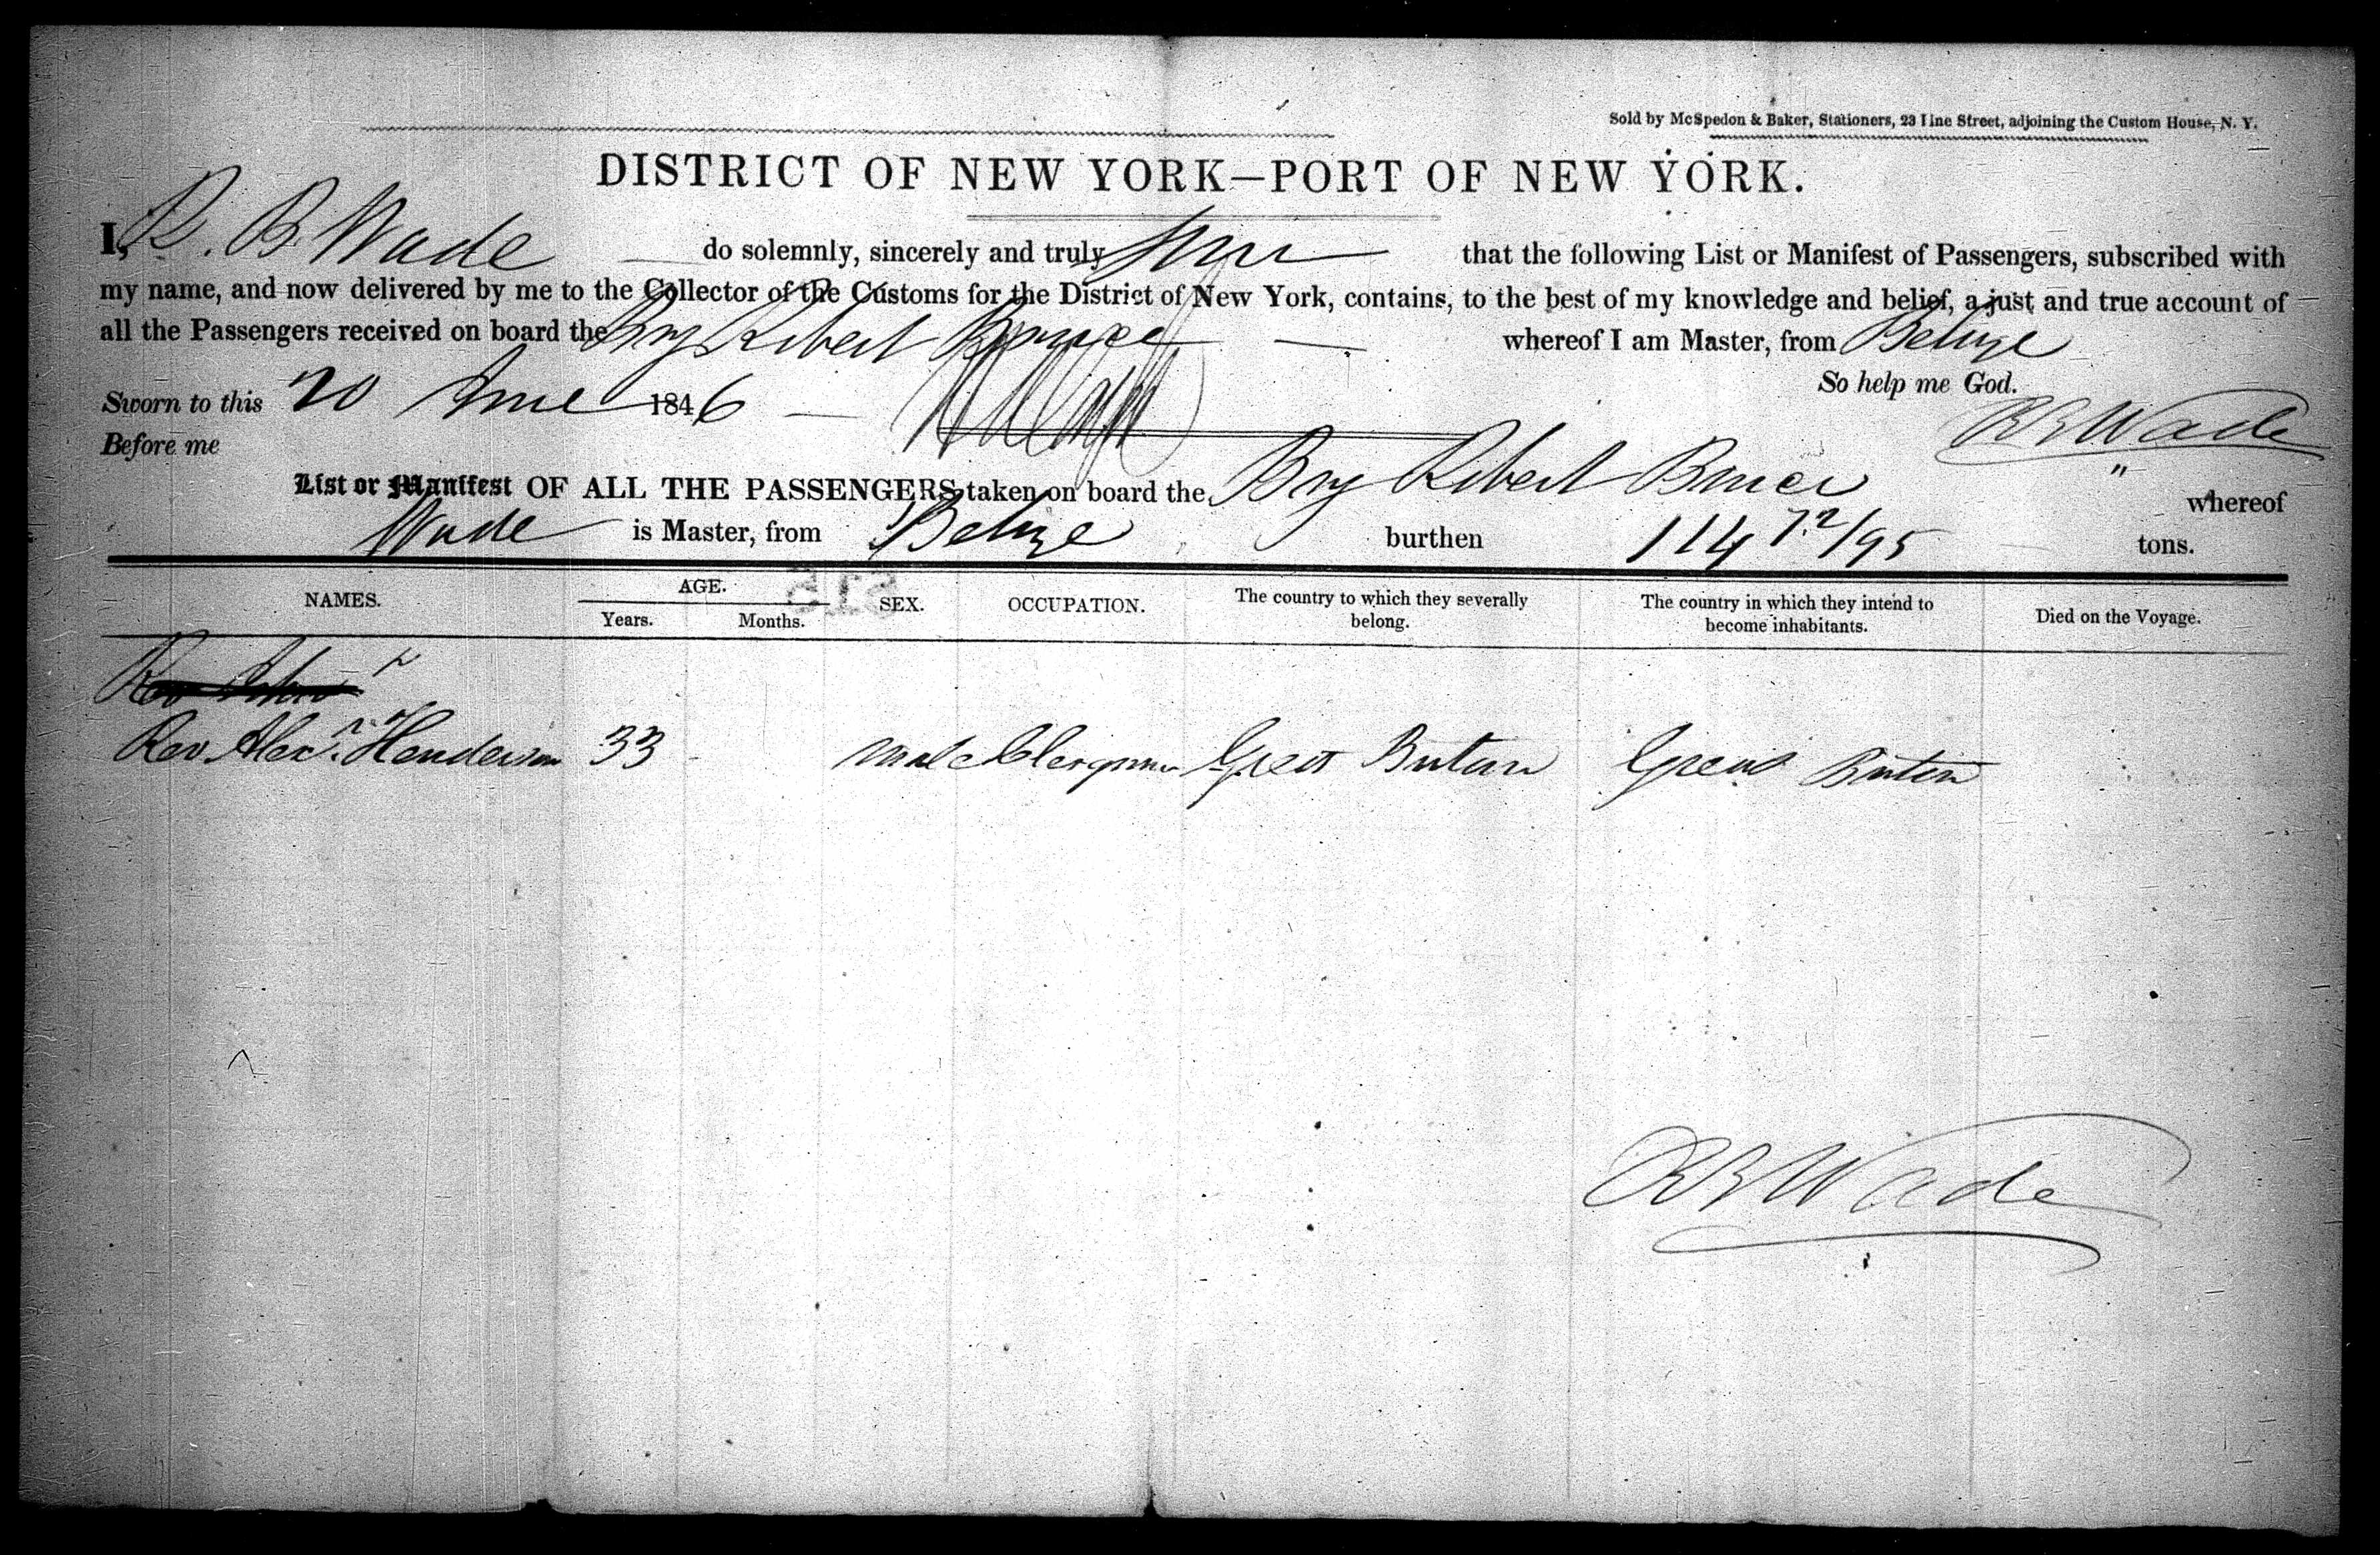 Sold by McSpedon & Baker, Stationers, 23 Pine Street, adjoining the Custom House, N. Y.
DISTRICT OF NEW YORK—PORT OF NEW YORK.
I, R. B Wade do solemnly, sincerely and truly that the following List or Manifest of Passengers, subscribed with
my name, and now delivered by me to the Collector of the Customs for the District of New York, contains, to the best of my knowledge and belief, a just and true account of
all the Passengers received on board the Brig Robert Bruce whereof I am Master, from Belize
So help me God.
Sworn to this 20 June 1846
R B Wade
Before me
List or Manifest OF ALL THE PASSENGERS taken on board the Brig Robert Bruce " whereof
Wade is Master, from Belize burthen 114 72/95 tons.
NAMES. AGE. SEX. OCCUPATION. The country to which they severally belong. The country in which they intend to become inhabitants. Died on the Voyage.
Years. Months.
Rev
Rev. Alexr. Henderson 33 male Clergman Great Britain Great Britain
R B Wade